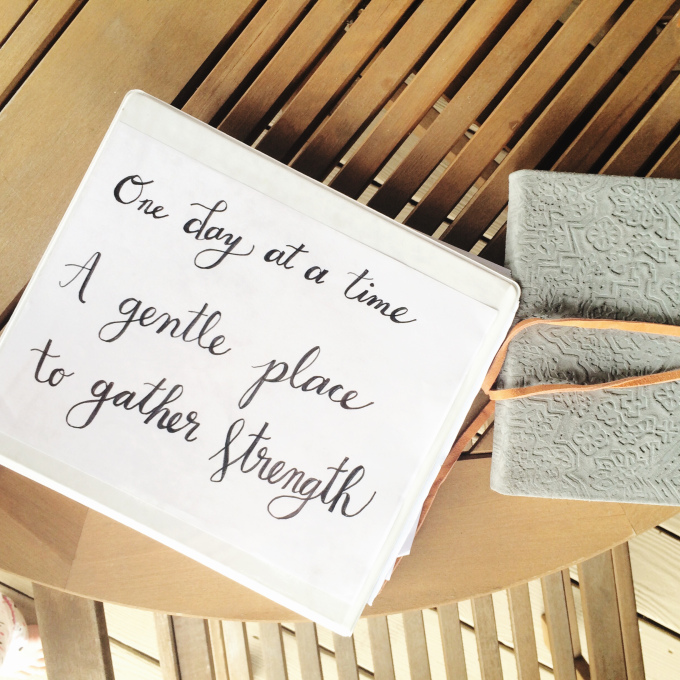 One day at a time
A gentle place
to gather strength